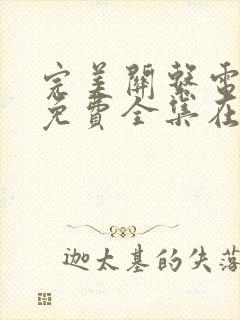 完美關係電
免費全集在
迦太基的失落